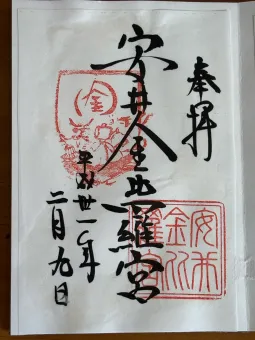 奉拝
安井金比羅宮
平成廿一年
二月九日
金